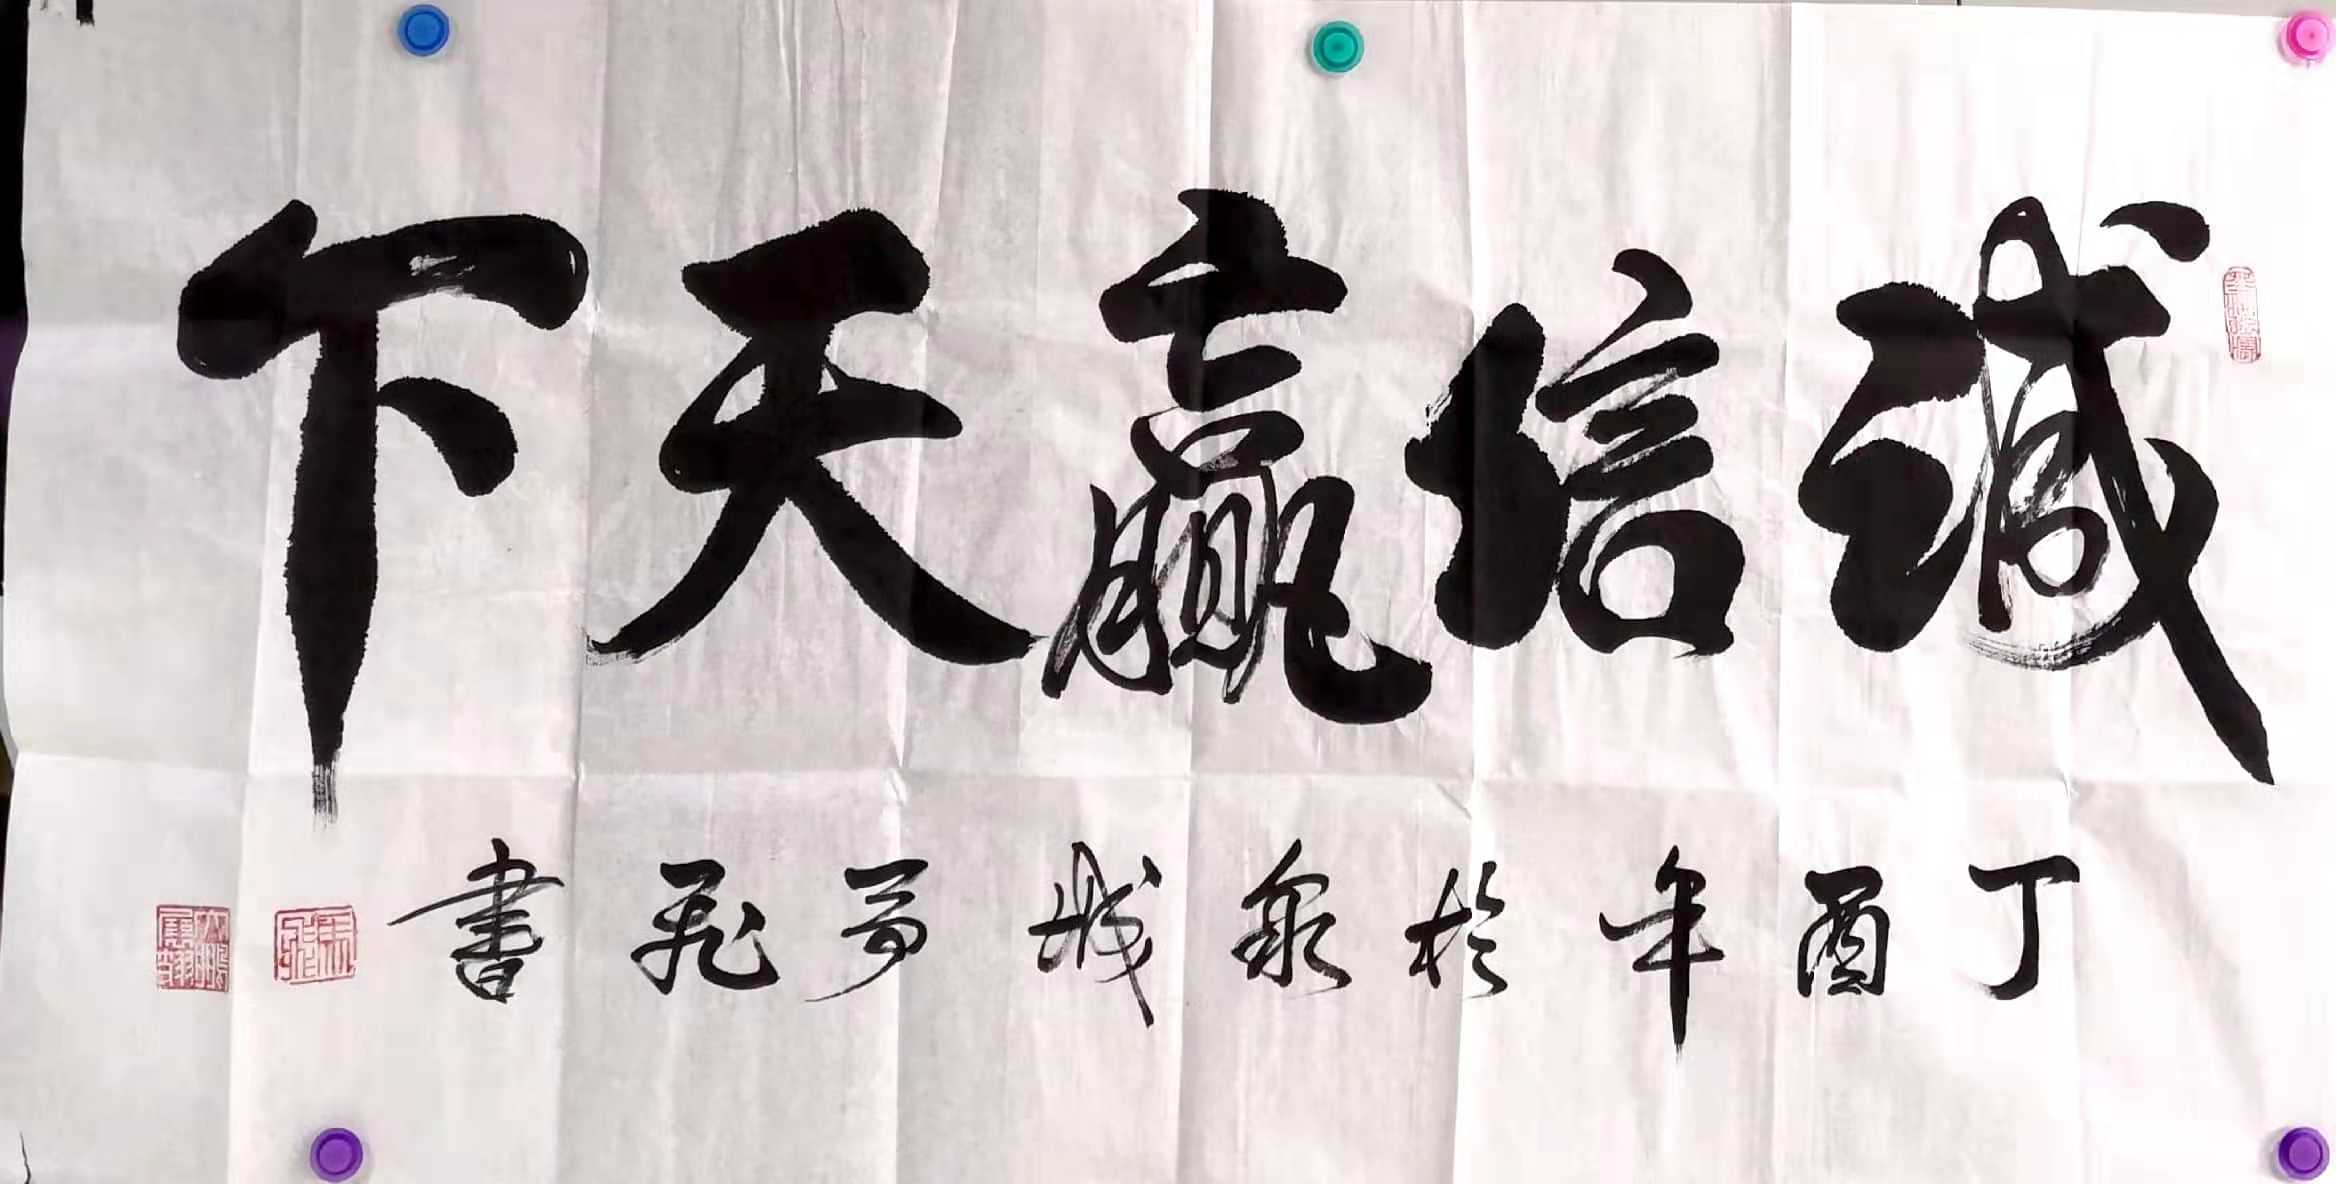 誠信贏天下
丁酉年於泉城雲飛書